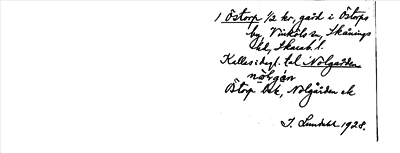 1 Östorp 1/2 hr, gård i Östorps
by, Vinköls sn, Skånings
hd, Skarab. l.
Kallas i dagl. tal Nolgården
nòlgán
Östorp bek, Nolgården ek
I. Lundahl 1928.